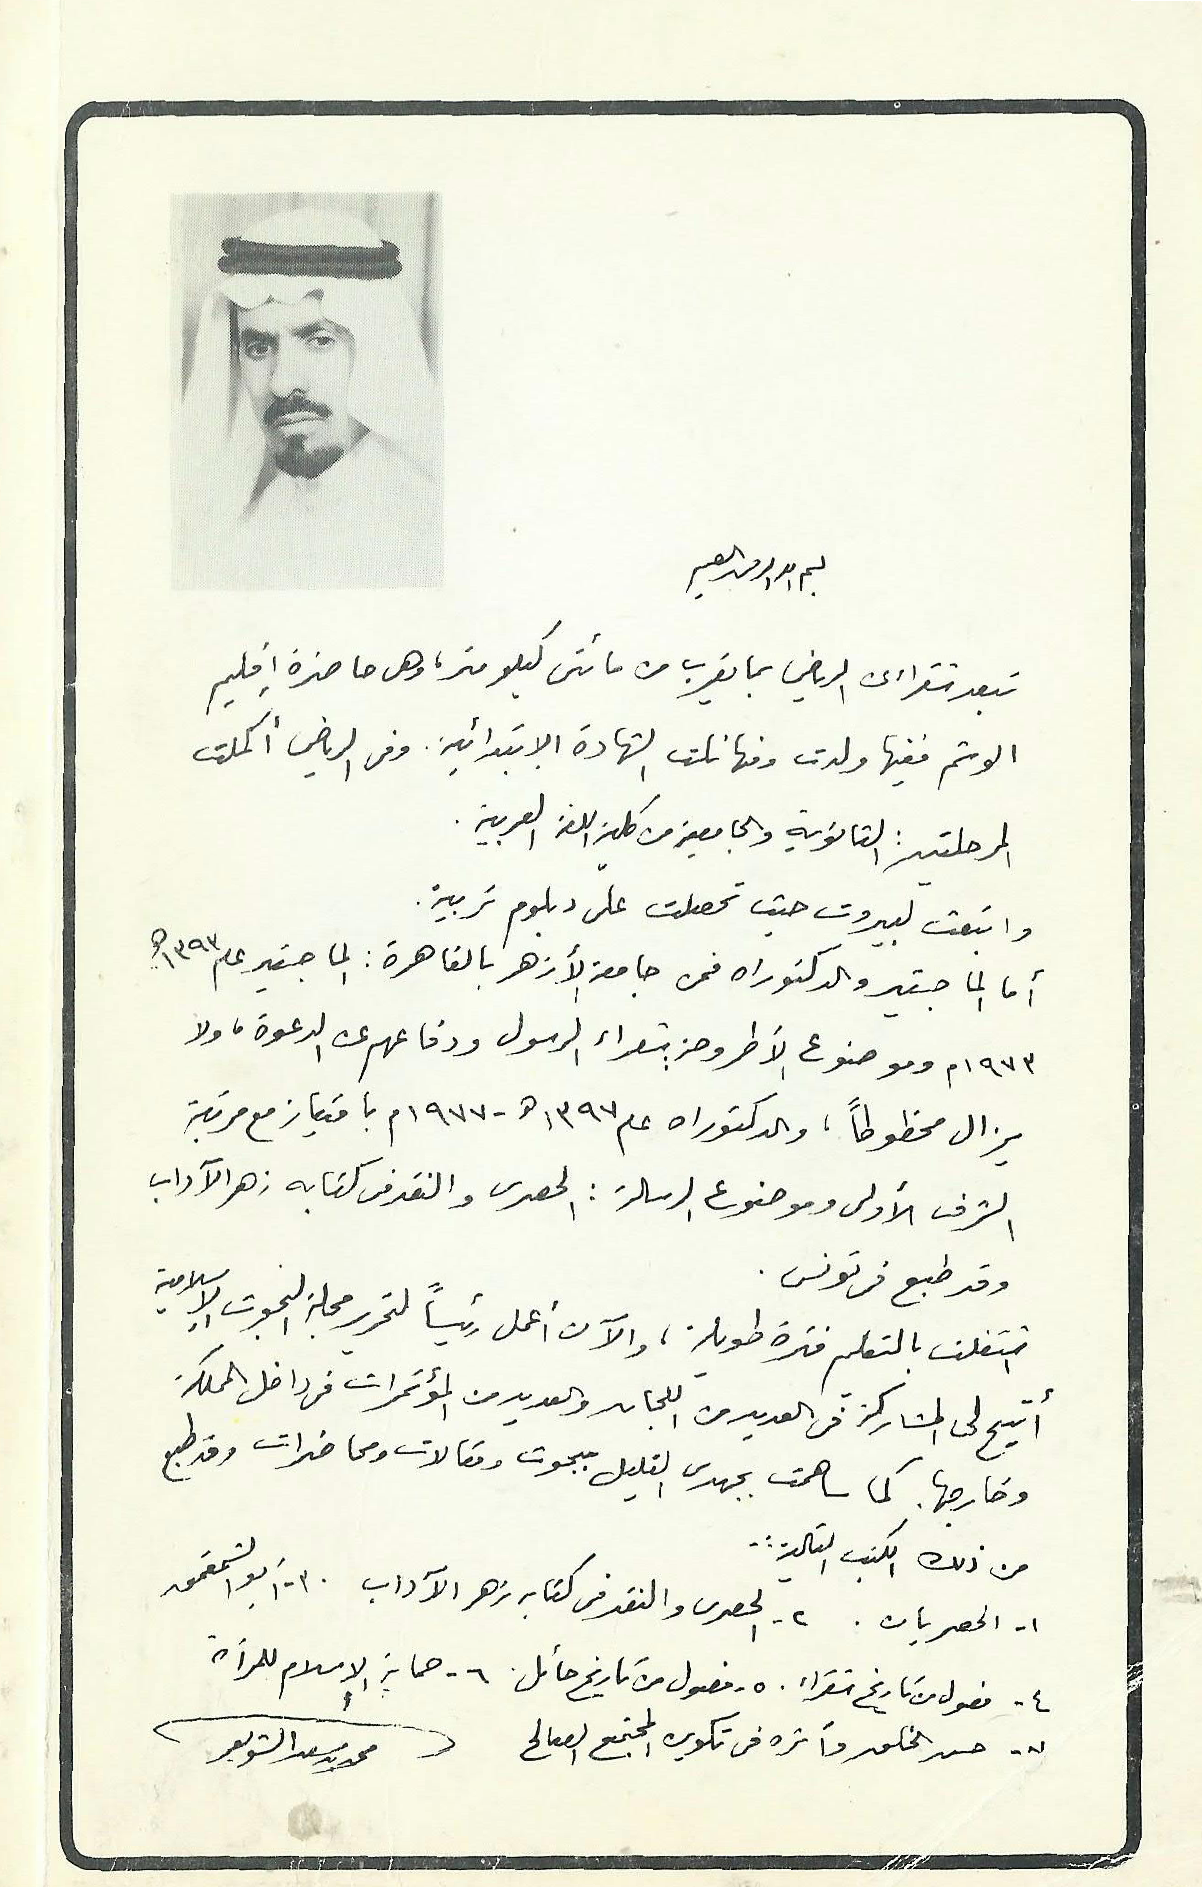 بسم الله الرحمن الرحيم
تبعد شقراء عن الرياض بما يقرب من مائتى كيلو متر، وهى حاضرة إقليم
الوشم ففيها ولدت ومنها نلت الشهادة الابتدائية. وفى الرياض أكملت
المرحلتين: الثانوية والجامعية من كلية اللغة العربية.
وابتعثت لبيروت حيث تحصلت على دبلوم تربية.
أما الماجستير والدكتوراه فمن جامعة الأزهر بالقاهرة: الماجستير عام ١٣٩٣هـ
١٩٧٣م وموضوع الأطروحة شعراء الرسول ودفاعهم عن الدعوة، ولا
يزال مخطوطاً، والدكتوراه عام ١٣٩٧هـ - ١٩٧٧م بامتياز مع مرتبة
الشرف الأولى وموضوع الرسالة: الحصرى والنقد فى كتابه زهر الآداب
وقد طبع فى تونس.
اشتغلت بالتعليم فترة طويلة، والآن أعمل رئيساً لتحرير مجلة البحوث الإسلامية
أتيح لى المشاركة فى العديد من اللجان والعديد من المؤتمرات فى داخل المملكة
وخارجها. كما ساهمت بجهدى القليل ببحوث ومقالات ومحاضرات وقد طبع
من ذلك الكتب التالية:-
١- الحصريان. ٢- الحصرى والنقد فى كتابه زهر الآداب. ٣- أبو الشمقمق
٤- فصول من تاريخ شقراء. ٥- فصول من تاريخ حائل. ٦- حماية الإسلام للمرأة
٧- حسن الخلق وأثره فى تكوين المجتمع الصالح محمد بن سعد الشويعر